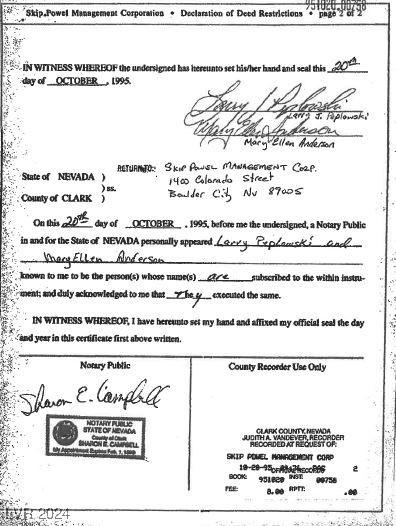 951020.00756
Skip Powel Management Corporation • Declaration of Deed Restrictions • page 2 of 2
IN WITNESS WHEREOF the undersigned has hereunto set his/her hand and seal this 20th
day of OCTOBER , 1995.
Larry J Peplowski
Larry J. Peplowski
Mary Ellen Anderson
Mary Ellen Anderson
RETURN TO: SKIP POWEL MANAGEMENT CORP.
State of NEVADA ) 1400 Colorado Street
) ss. Boulder City NV 89005
County of CLARK )
On this 20th day of OCTOBER , 1995, before me the undersigned, a Notary Public
in and for the State of NEVADA personally appeared Larry Peplowski and
Mary Ellen Anderson
known to me to be the person(s) whose name(s) are subscribed to the within instru-
ment; and duly acknowledged to me that They executed the same.
IN WITNESS WHEREOF, I have hereunto set my hand and affixed my official seal the day
and year in this certificate first above written.
Notary Public
Sharon E. Campbell
NOTARY PUBLIC
STATE OF NEVADA
County of Clark
SHARON E. CAMPBELL
My Appointment Expires Feb. 1,
County Recorder Use Only
CLARK COUNTY, NEVADA
JUDITH A. VANDEVER, RECORDER
RECORDED AT REQUEST OF:
SKIP POWEL MANAGEMENT CORP
10-20-95 2
OFFICIAL RECORDS
BOOK: 951020 INST: 00756
FEE: 8.00 RPTT: .00
LVR 2024